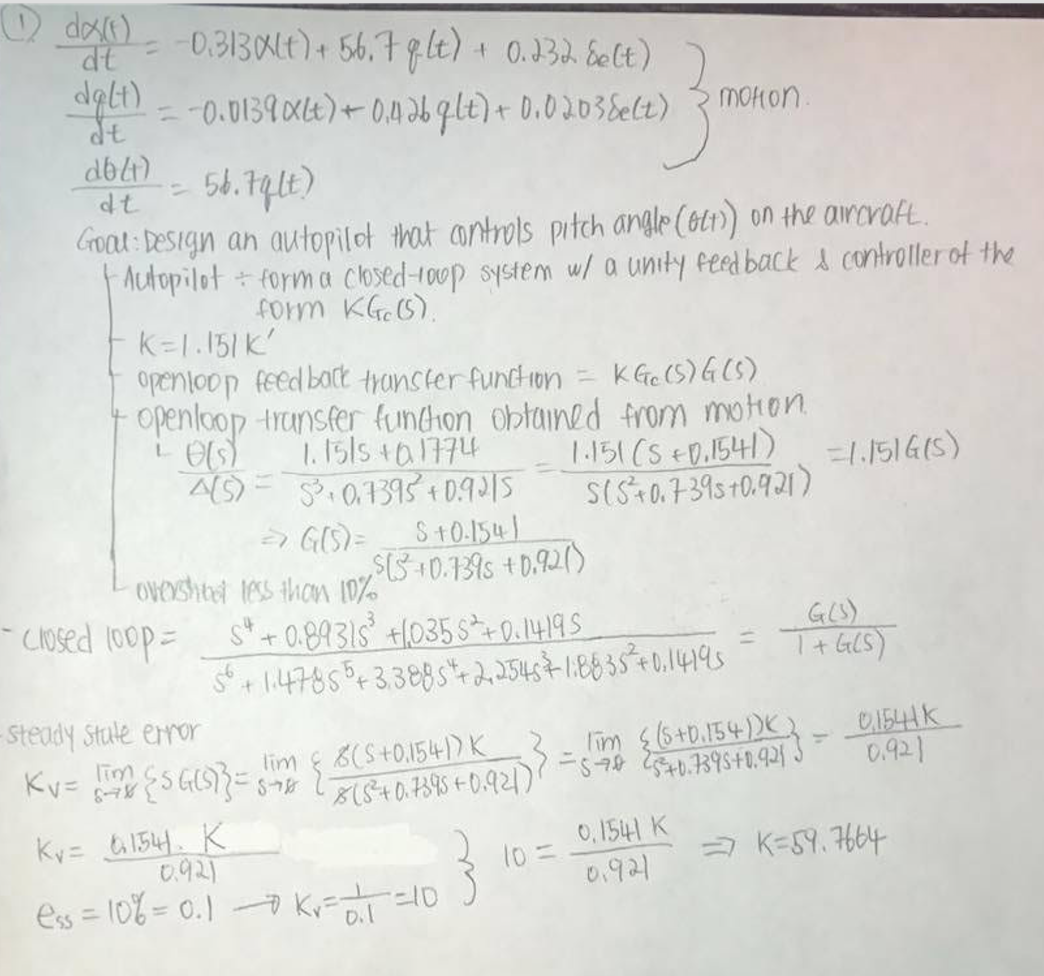 ① dα(t)/dt = -0.313α(t) + 56.7 q(t) + 0.232 δe(t)
dq(t)/dt = -0.0139α(t) - 0.426 q(t) + 0.0203 δe(t) } motion.
dθ(t)/dt = 56.7q(t)
Goal: Design an autopilot that controls pitch angle (θ(t)) on the aircraft.
Autopilot ÷ form a closed-loop system w/ a unity feedback & controller of the
form KGc(s).
K=1.151K'
openloop feedback transfer function = KGc(s)G(s)
openloop transfer function obtained from motion.
θ(s)/Δ(s) = (1.151s + 0.1774)/(s³ + 0.739s² + 0.921s) = 1.151(s + 0.1541)/(s(s² + 0.739s + 0.921)) = 1.151G(s)
⇒ G(s) = (s + 0.1541)/(s(s² + 0.739s + 0.921))
overshoot less than 10%
- closed loop = (s⁴ + 0.8931s³ + 1.035s² + 0.1419s)/(s⁶ + 1.478s⁵ + 3.388s⁴ + 2.254s³ + 1.883s² + 0.1419s) = G(s)/(1 + G(s))
- steady state error
Kv = lim s→0 {sG(s)} = lim s→0 {s(s+0.1541)K/(s(s²+0.739s+0.921))} = lim s→0 {(s+0.1541)K/(s²+0.739s+0.921)} = 0.1541K/0.921
Kv = 0.1541. K/0.921 } 10 = 0.1541 K/0.921 ⇒ K=59.7664
ess = 10% = 0.1 → Kv = 1/0.1 = 10